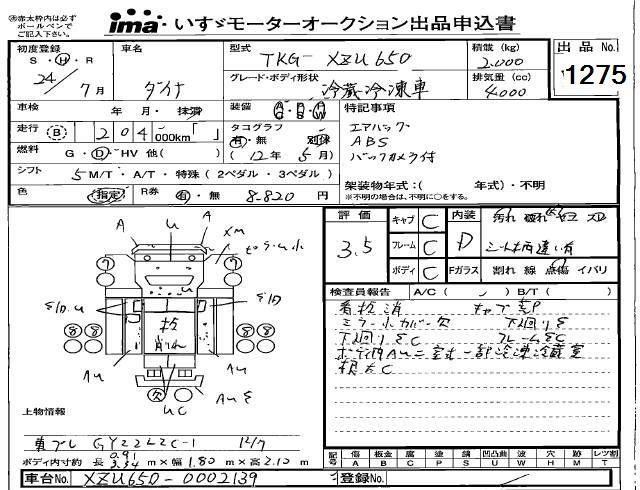 ※赤太枠内は必ず
ボールペンで
ご記入下さい。
ima いすゞモーターオークション出品申込書
初度登録
S・H・R
24/7月
車名
ダイナ
型式
TKG-XZU650
積載 (kg)
2.000
出品 No.
1275
グレード・ボディ形状
冷蔵冷凍車
排気量 (cc)
4000
車検 年・月・抹消
装備
A/C P/S P/W
特記事項
走行 B 204,000km「 」
タコグラフ
有・無 別体
(12年 5月)
エアバッグ
ABS
バックカメラ付
燃料 G・D・HV 他( )
シフト 5M/T・A/T・特殊(2ペダル・3ペダル)
架装物年式:( 年式)・不明
※不明の場合は、不明に○をする。
色 指定
R券 有・無 8.820円
評価
3.5
キャブ C
フレーム C
ボディ C
内装
D
汚れ 破れ
シート柄違い有
Fガラス 割れ 線 点傷 イバリ
検査員報告 A/C( ) B/T( )
看板消
ミラー小カバー欠
下廻りE
下廻りEC
フレームEC
ボディ内Au二室式一部冷凍冷蔵室
損大C
A
u
A
XM
E/D.u
E/D
板
Au
Au
uC
AuE
上物情報
東プレ GY22L2C-1 12/7
ボディ内寸約 長 0.91 3.34 m×幅 1.80 m×高 2.10 m
記号 傷A 板金B 腐C 塗P 錆S 凹凸曲U 欠W 穴H 跡M レツ割T
車台No. XZU650-0002139
登録No.